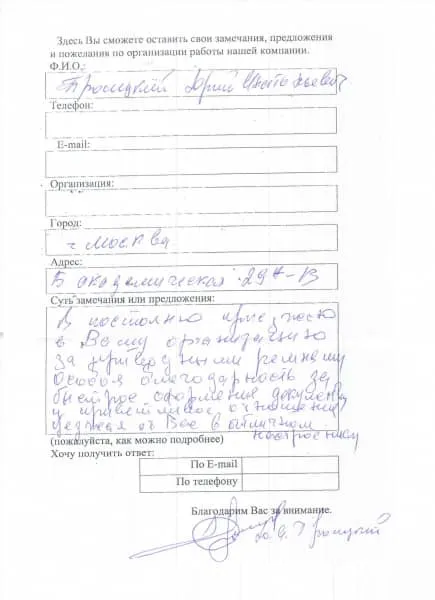 Здесь Вы сможете оставить свои замечания, предложения
и пожелания по организации работы нашей компании.
Ф.И.О.:
Троицкий Юрий
Телефон:
E-mail:
Организация:
Город:
г Москва
Адрес:
Б Академическая 29
Суть замечания или предложения:
Я постоянно приезжаю
в Вашу организацию
за
Особая благодарность за
быстрое оформление
и приветливое отношение
от Вас в отличном
настроении
(пожалуйста, как можно подробнее)
Хочу получить ответ:
По E-mail
По телефону
Благодарим Вас за внимание.
Троицкий